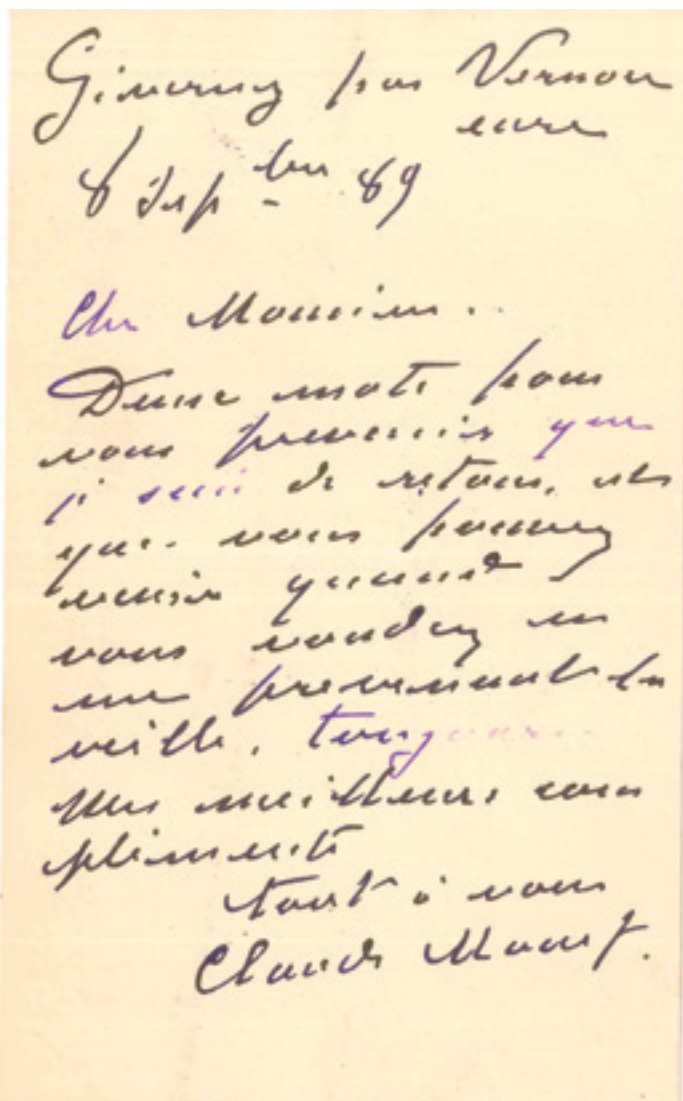 Giverny par Vernon
eure
8 Sep bre 89
Cher Monsieur.
Deux mots pour
vous prevenir que
je suis de retour, et
que vous pouvez
venir quand
vous voudrez en
me prevenant la
veille, toujours
Mes meilleurs com
pliments
tout à vous
Claude Monet.